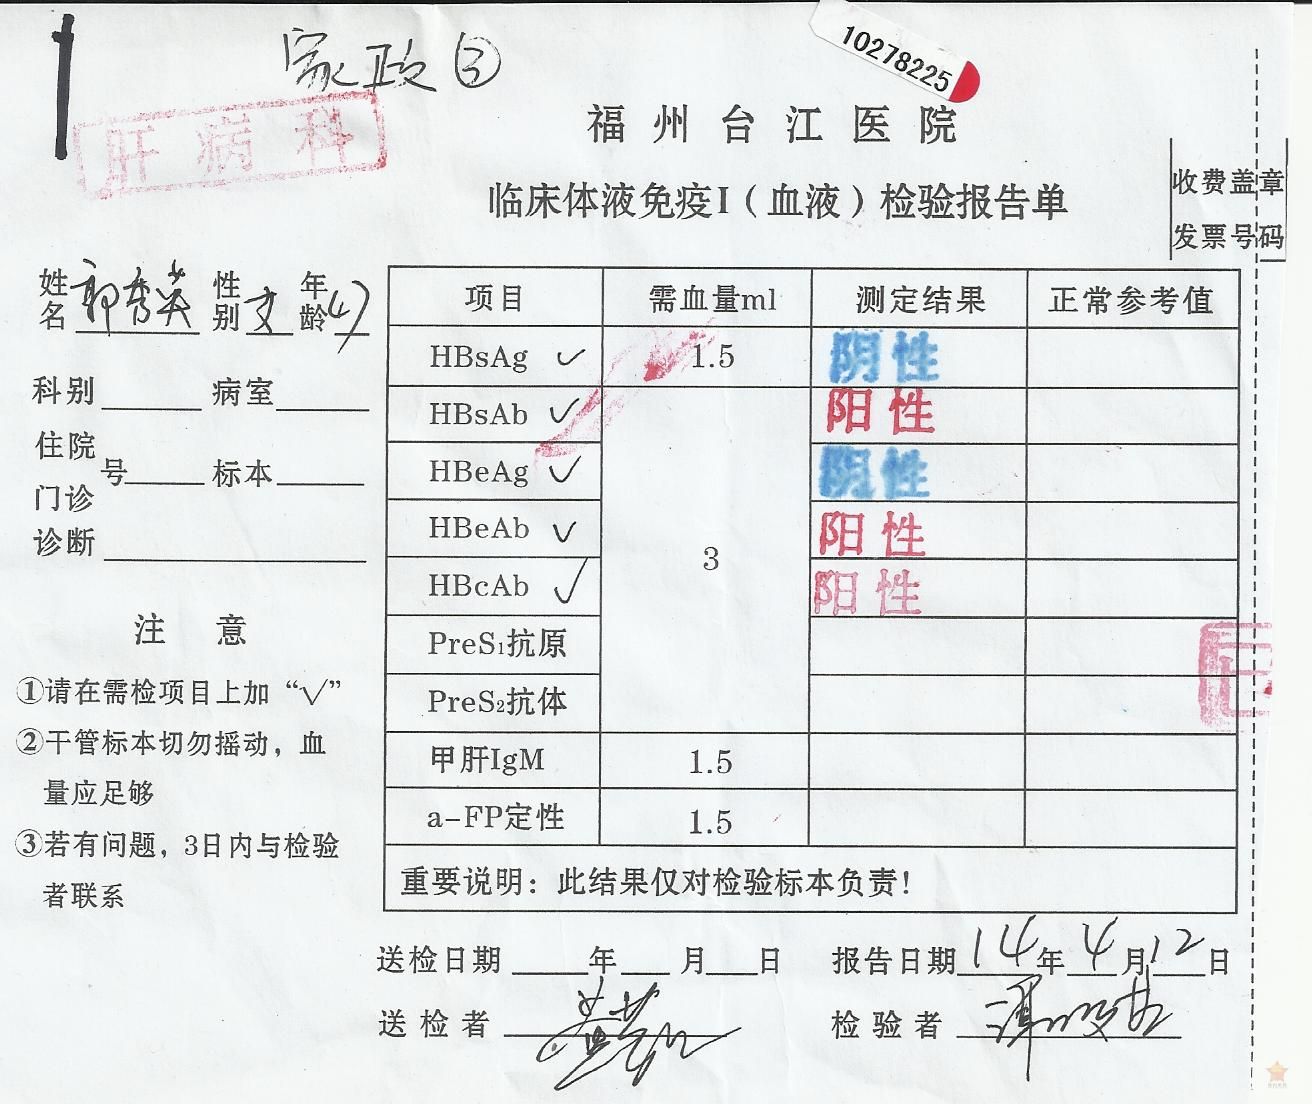 家政③
10278225
肝病科
福州台江医院
临床体液免疫I（血液）检验报告单
收费盖章
发票号码
姓名 郭秀英 性别 女 年龄 47
科别 病室
住院
门诊 号 标本
诊断
注 意
①请在需检项目上加“√”
②干管标本切勿摇动，血
量应足够
③若有问题，3日内与检验
者联系
项目 需血量ml 测定结果 正常参考值
HBsAg ✓ 1.5 阴性
HBsAb ✓ 阳性
HBeAg ✓ 阴性
HBeAb ✓ 3 阳性
HBcAb ✓ 阳性
PreS₁抗原
PreS₂抗体
甲肝IgM 1.5
a-FP定性 1.5
重要说明：此结果仅对检验标本负责！
送检日期 年 月 日 报告日期 14年4月12日
送检者 检验者